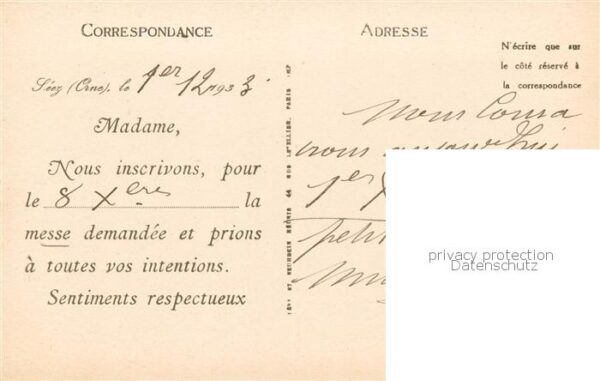 CORRESPONDANCE
Séez (Orne), le 1er 12 1933
Madame,
Nous inscrivons, pour
le 8 Xbre la
messe demandée et prions
à toutes vos intentions.
Sentiments respectueux
ADRESSE
N'écrire que sur
le côté réservé à
la correspondance
Nous
vous aujourd'hui
1er
petit
privacy protection
Datenschutz